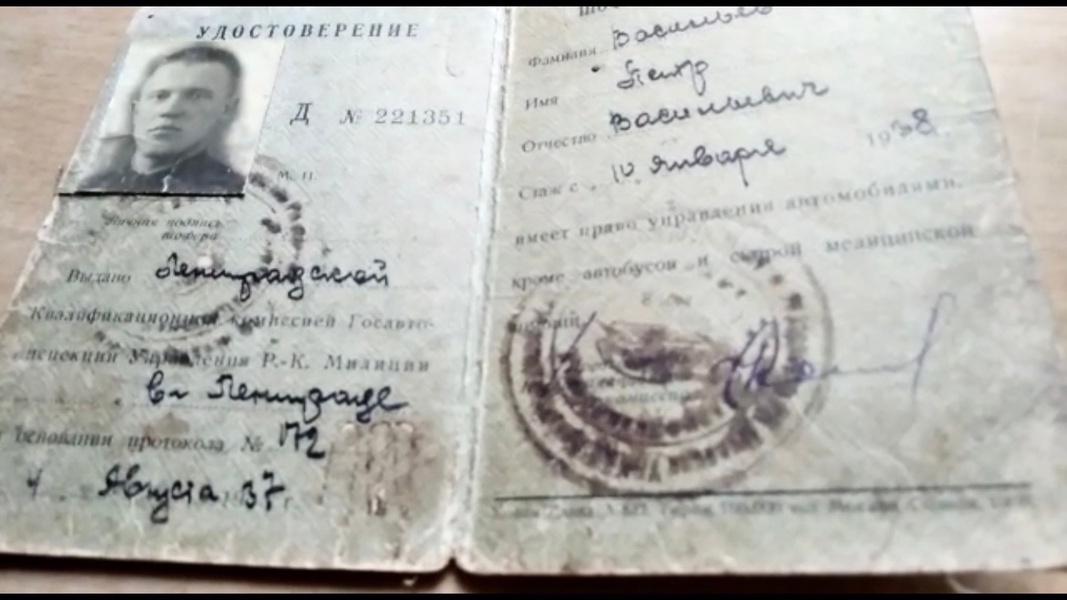 УДОСТОВЕРЕНИЕ
Д № 221351
М. П.
Личная подпись
шофера
Выдано Ленинградской
Квалификационной комиссией Госавто-
инспекции Управления Р.-К. Милиции
в г Ленинграде
основании протокола № 172
4 Августа 1937 г.
Фамилия Васильев
Имя Петр
Отчество Васильевич
Стаж с 10 января 1938
имеет право управления автомобилями,
кроме автобусов и скорой медицинской